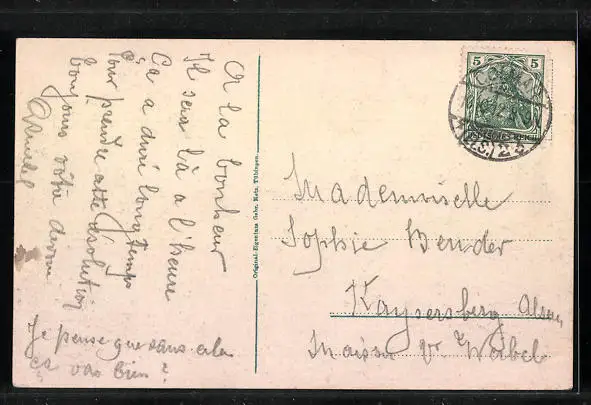 A la bonheur
Il sera là a l'heure
Ça a duré longtemps
pour prendre cette résolution
bonjours votre
Je pense que sans cela
ça vas bien?
Original-Eigentum Gebr. Metz, Tübingen.
5 5
COLMAR
DEUTSCHES REICH
Mademoiselle
Sophie Bender
Kaysersberg Alsace
Maison